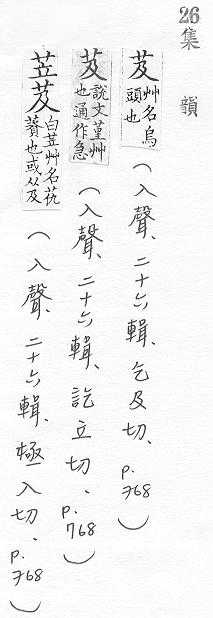 26
集韻
芨艸名烏頭也(入聲、二十六緝、乞及切、p.768)
芨說文堇艸也通作急(入聲、二十六緝、訖立切、p.768)
苙芨白苙艸名茋蕦也或从及(入聲、二十六緝、極入切、p.768)